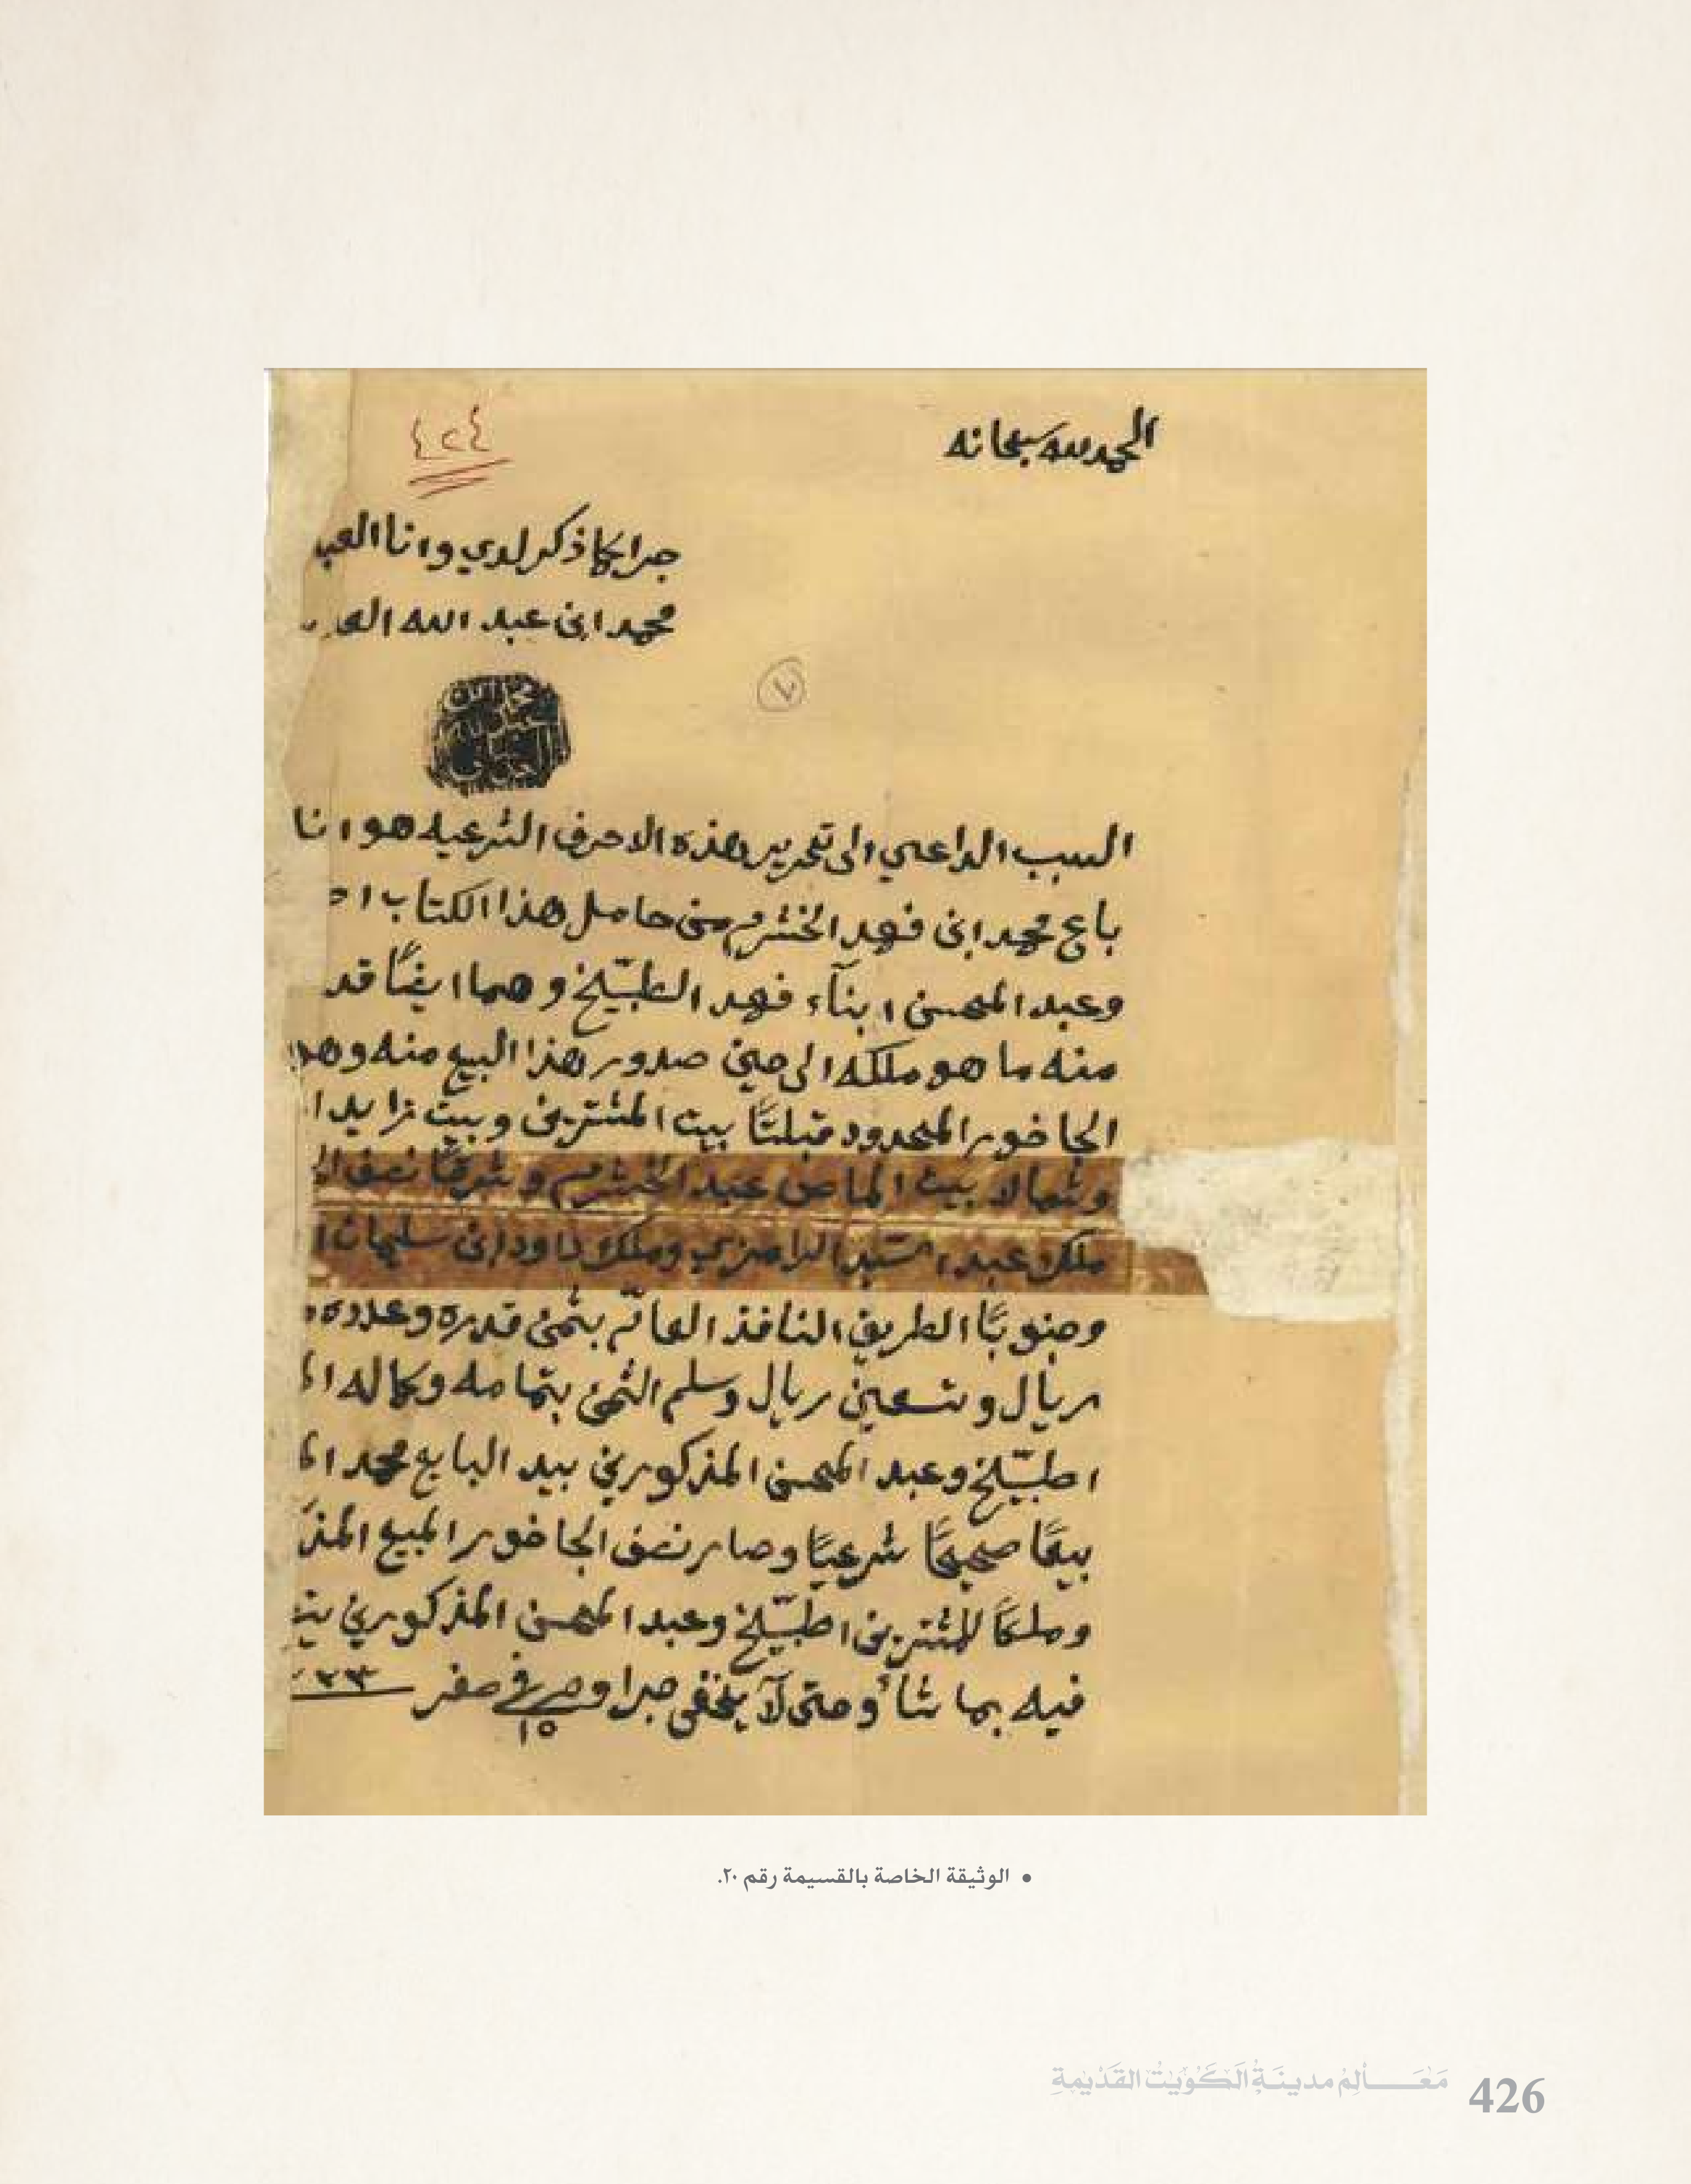 الحمد لله سبحانه
٤٢٤
جرا كما ذكر لدي وانا العبد
محمد ابن عبد الله العد
٧
السبب الداعي الى تحرير هذه الاحرف الشرعيه هو انا
باع محمد ابن فهد الخشرم من حامل هذا الكتاب
وعبد المحسن ابناء فهد اطبيّخ وهما ايضًا قد
منه ما هو ملكه الى حين صدور هذا البيع منه وهو
الجاخور المحدود قبلتًا بيت المشترين وبيت زايد
وشمالا بيت الماص عبد الخشرم وشرقًا نصف
ملك عبد السيد الرامزي وملك داود ابن سليمان
وجنوبًا الطريق النافذ العآم بثمن قدره وعدده
ريال وتسعين ريال وسلم الثمن بتمامه وكماله
اطبيّخ وعبد المحسن المذكورين بيد البايع محمد
بيعًا صحيحًا شرعيًا وصار نصف الجاخور المبيع المذ
وملكًا للمشترين اطبيّخ وعبد المحسن المذكورين
فيه بما شأ وحتى لآ يخفى جرا وصح في ١٥ صفر ٢٣
• الوثيقة الخاصة بالقسيمة رقم ٢٠.
مَعَالِمُ مدينَةِ الكُوَيْت القَدْيمَةِ
426